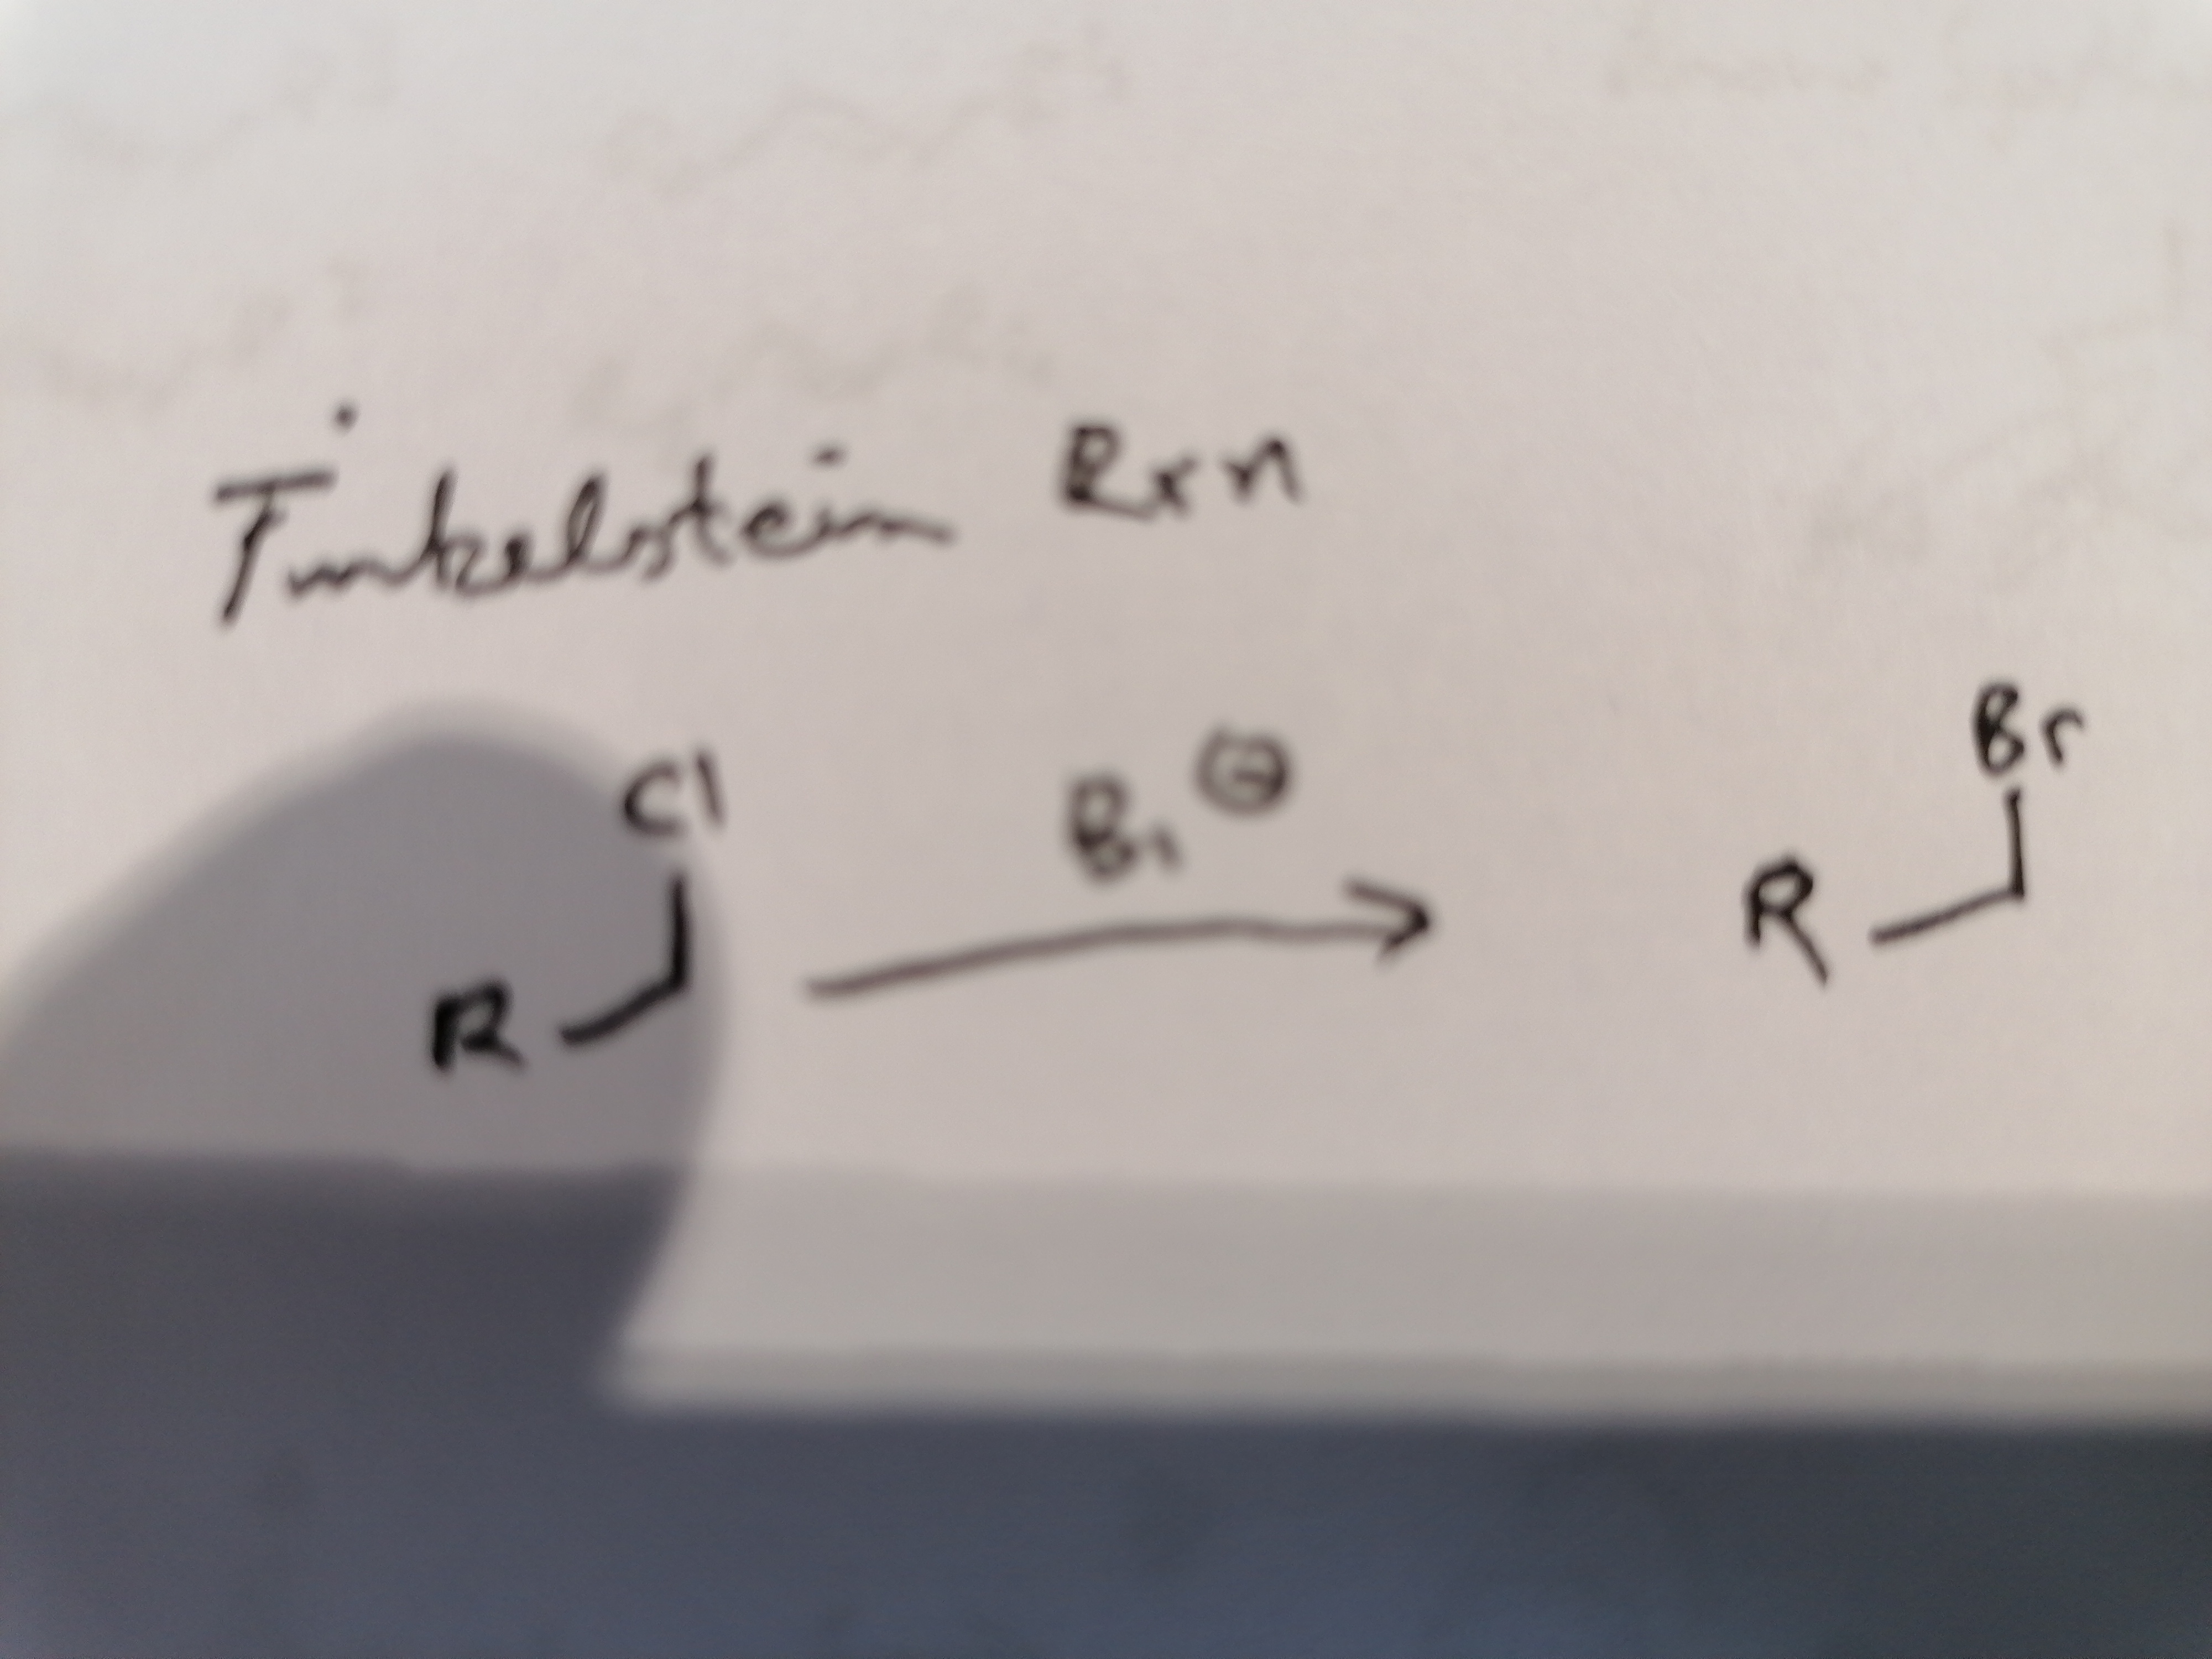 Finkelstein Rxn
Cl
Br ⊖
Br
R
R